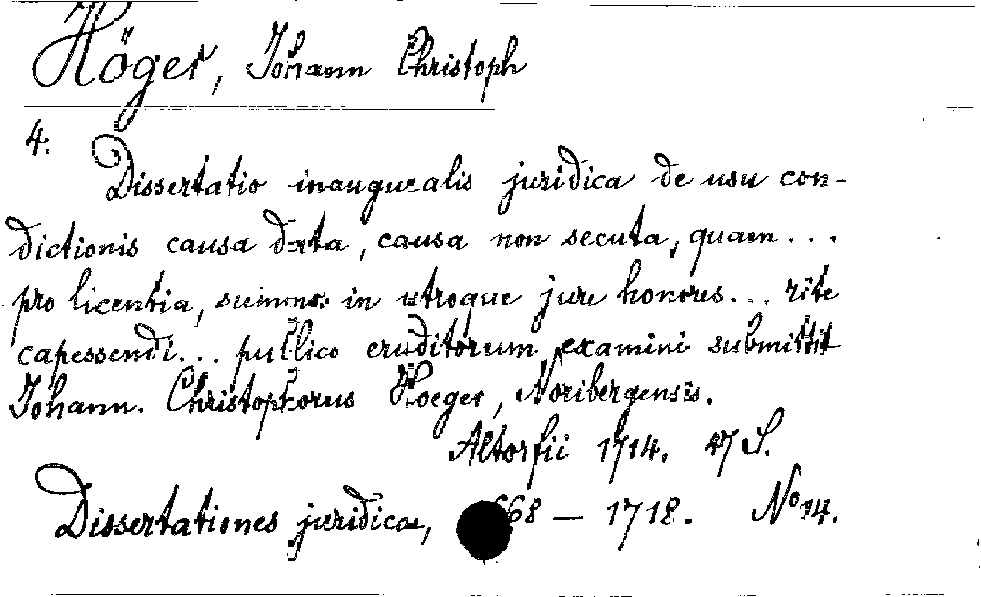 Höger, Johann Christoph
4.
Dissertatio inauguralis juridica de usu con-
dictionis causa data, causa non secuta, quam...
pro licentia, summos in utroque jure honores... rite
capessendi... publico eruditorum examini submittit
Johann. Christophorus Hoeger, Noribergensis.
Altorfii 1714. 47 S.
Dissertationes juridicae, 668 – 1718. No 14.